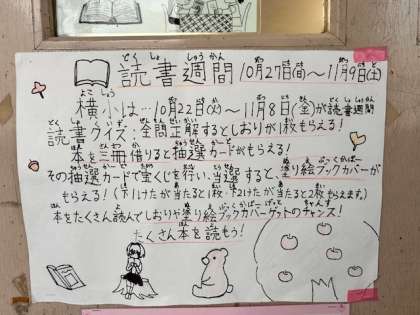 読書週間 10月27日～11月9日(土)
横小は…10月22日(火)～11月8日(金)が読書週間
読書クイズ:全問正解するとしおりが1枚もらえる!
本を三冊借りると抽選カードがもらえる!
その抽選カードで宝くじを行い、当選すると、塗り絵ブックカバーが
もらえる!(下1けたが当たると1枚・下2けたが当たると2枚もらえます。)
本をたくさん読んでしおりや塗り絵ブックカバーゲットのチャンス!
たくさん本を読もう!